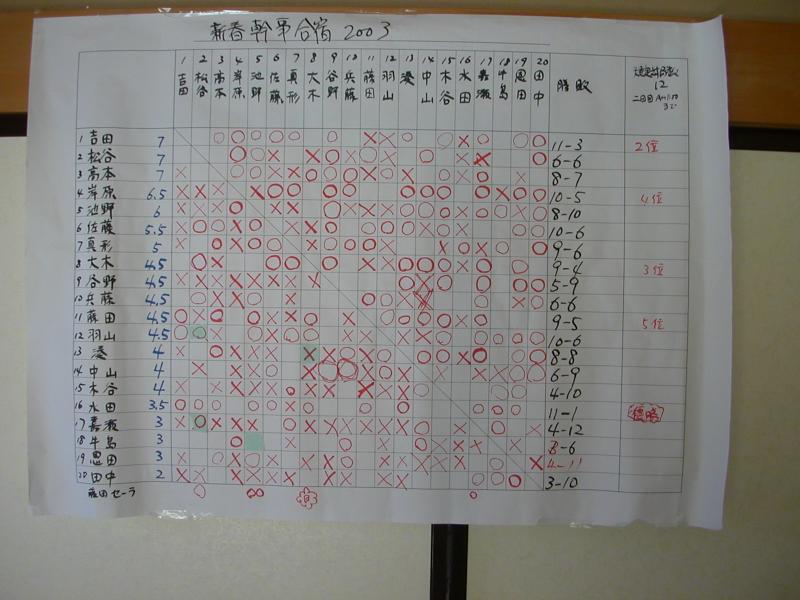 新春幹事合宿 2003
1 2 3 4 5 6 7 8 9 10 11 12 13 14 15 16 17 18 19 20
吉田 松谷 高本 岸原 池野 佐藤 真形 大木 谷野 兵藤 藤田 羽山 湊 中山 木谷 水田 嘉瀬 牛島 恩田 田中 勝敗
12
1 吉田 7 11-3 2位
2 松谷 7 6-6
3 高本 7 8-7
4 岸原 6.5 10-5 4位
5 池野 6 8-10
6 佐藤 5.5 10-6
7 真形 5 9-6
8 大木 4.5 9-4 3位
9 谷野 4.5 5-9
10 兵藤 4.5 6-6
11 藤田 4.5 9-5 5位
12 羽山 4.5 10-6
13 湊 4 8-8
14 中山 4 6-9
15 木谷 4 4-10
16 水田 3.5 11-1 優勝
17 嘉瀬 3 4-12
18 牛島 3
19 恩田 3 4-11
20 田中 2 3-10
藤田 セーラ